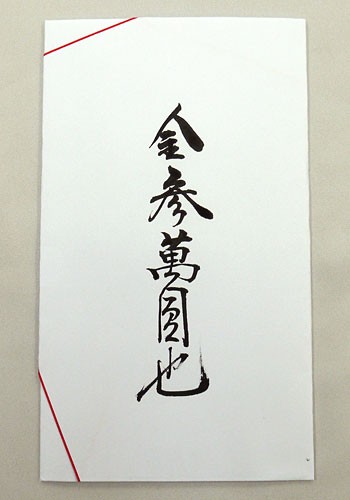 金参萬圓也